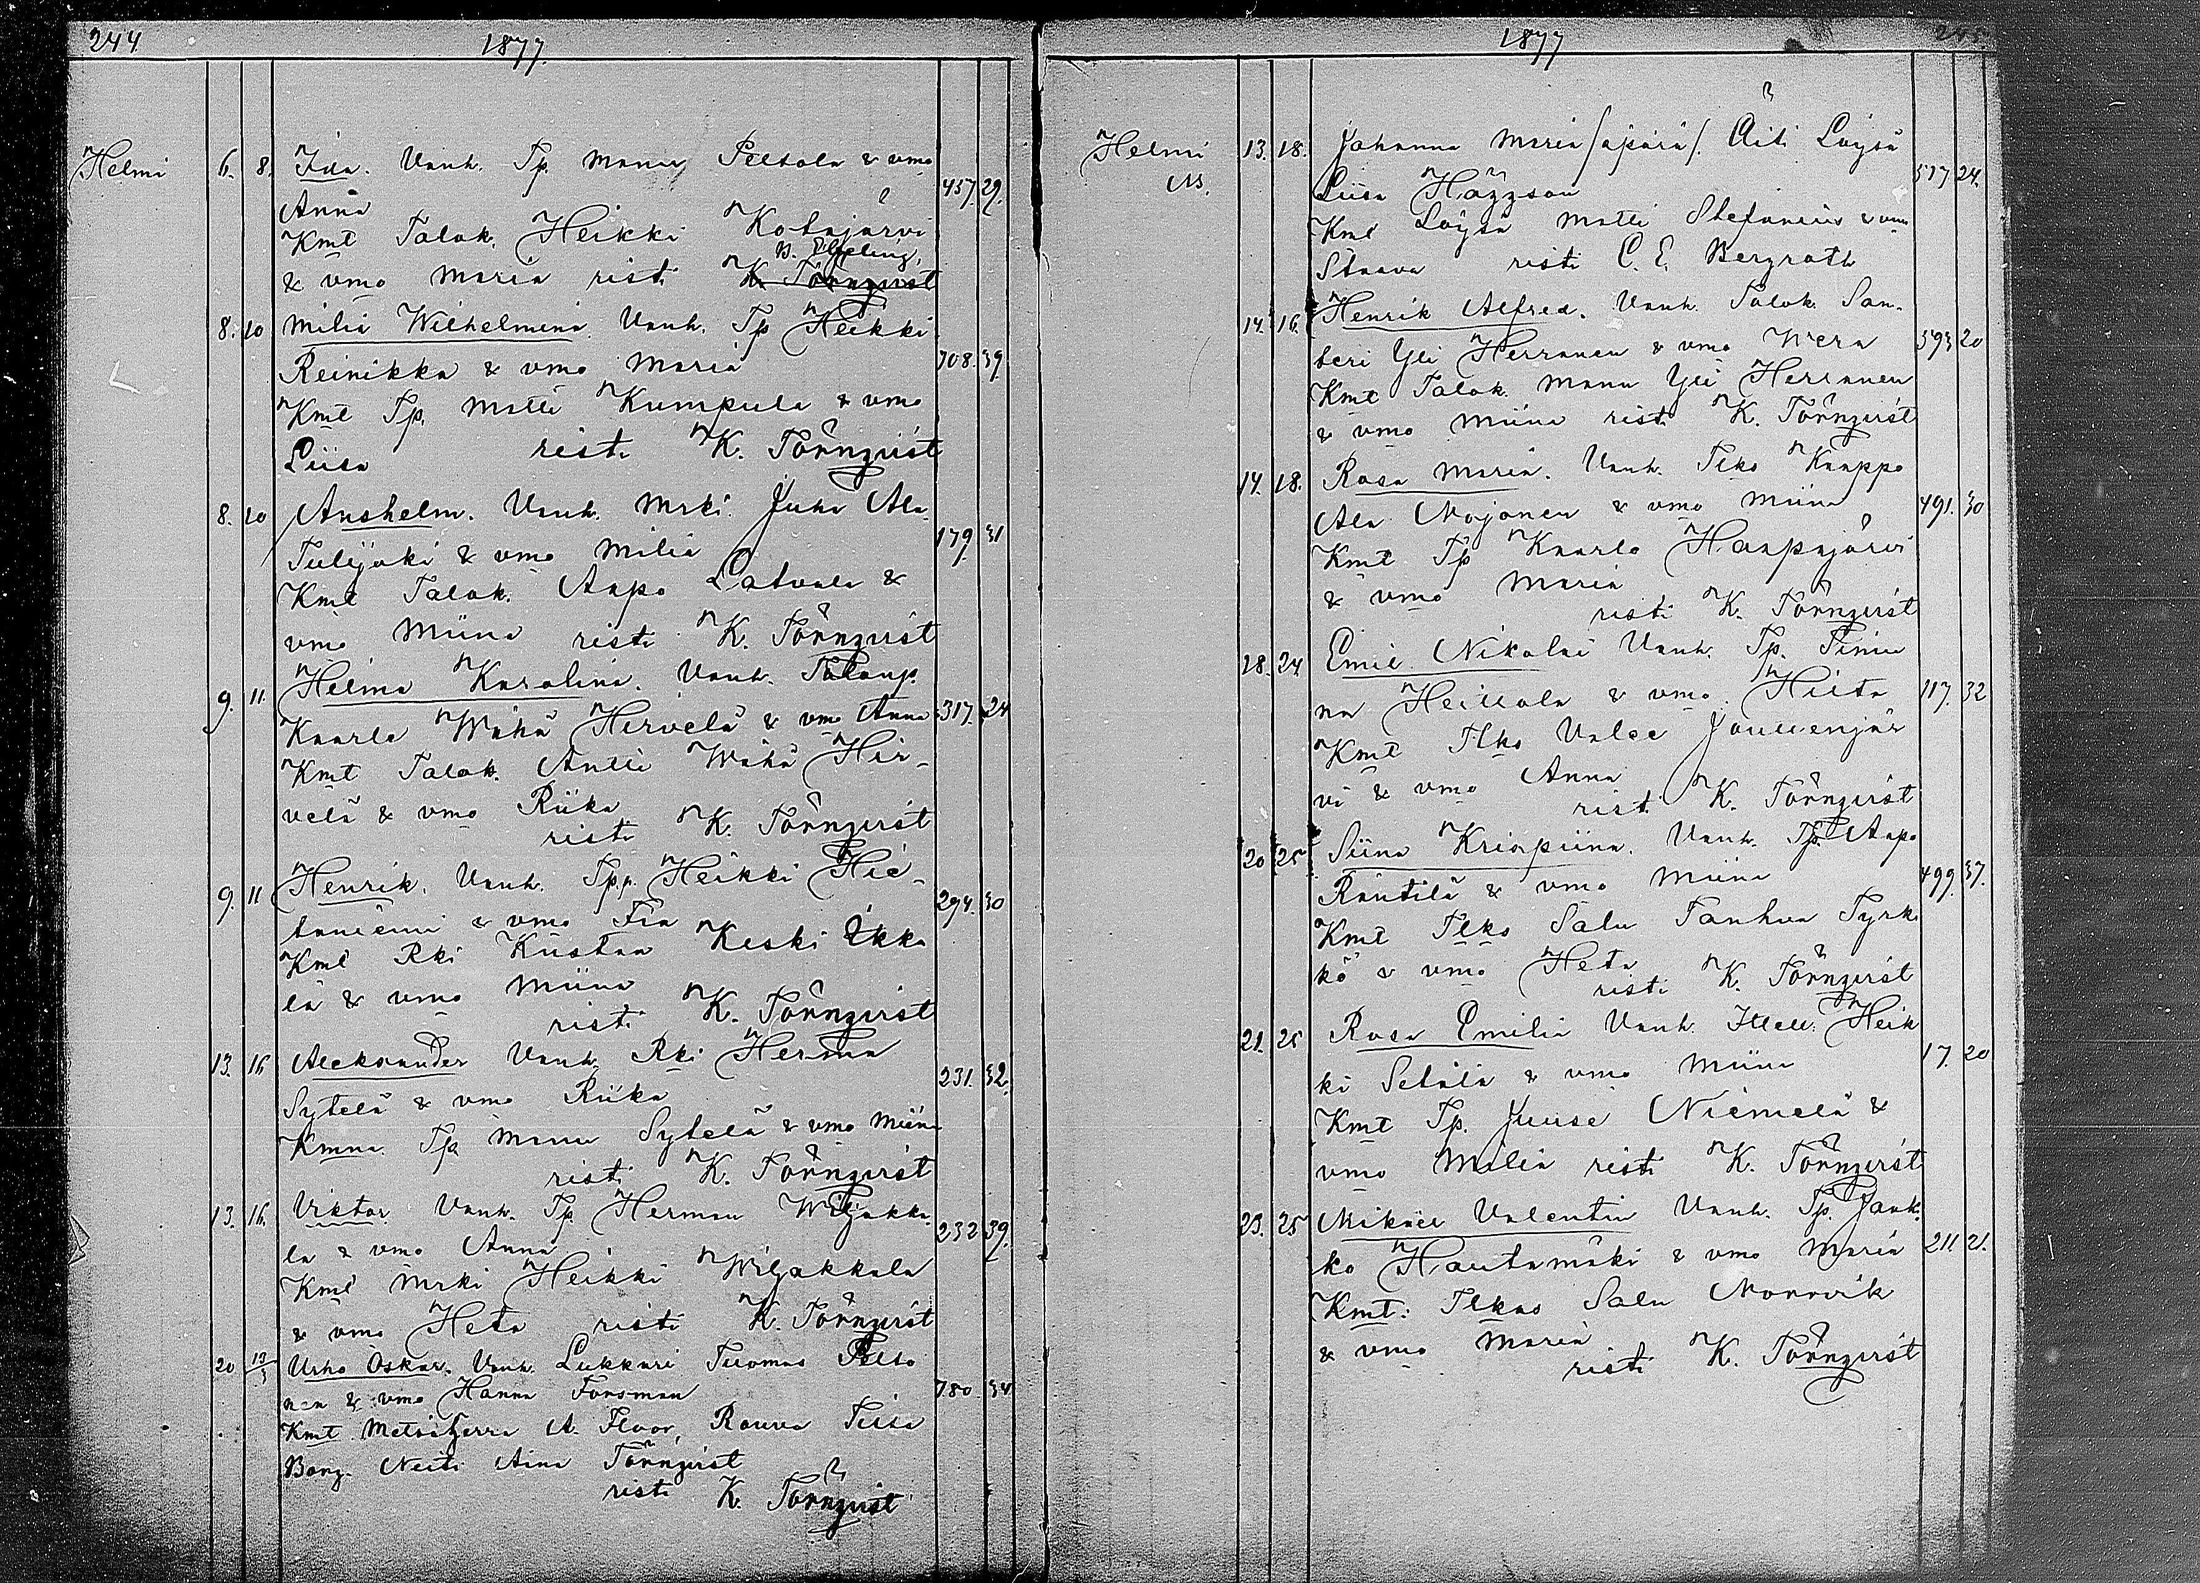 244 1877.
Helmi 6. 8. Ida. Vanh. Tp. Manu Peltola & vmo
Anna 457. 29.
Kmt Talok. Heikki Kotajärvi
& vmo Maria risti K Törnqvist
8. 10 Milia Wilhelmina. Vanh. Tp Heikki
Reinikka & vmo Maria 708. 39.
Kmt Tp. Matti Kumpula & vmo
Liisa risti K. Törnqvist
8. 10 Anshelm. Vanh. Mrki. Juha Ala
Tulijoki & vmo Milia 179. 31
Kmt Talok. Aapo Latvala &
vmo Miina risti K. Törnqvist
9. 11. Helma Karolina. Vanh. Talonp.
Kaarle Wähä Hirvelä & vmo Anna 317. 24
Kmt Talok. Antti Wähä Hir-
velä & vmo Riika
risti K. Törnqvist
9. 11 Henrik. Vanh. Tp. Heikki Hie-
taniemi & vmo Fia 294. 30
Kmt Rki Kustaa Keski Ikka
lä & vmo Miina
risti K. Törnqvist
13. 16 Aleksander Vanh. Rki Herman
Sytelä & vmo Riika 231. 32.
Kmna Tp. Manu Sytelä & vmo Miina
risti K. Törnqvist
13. 16. Viktor Vanh. Tp. Herman Wiljakka
la & vmo Anna 232 39.
Kmt Mrki Heikki Wiljakkala
& vmo Heta risti K. Törnqvist
20 13/3 Urho Oskar. Vanh. Lukkari Tuomas Pelto
nen & vmo Hanna Forsman 780 34
Kmt Metsäherra A. Floor, Rouva
Borg. Neiti Aina Törnqvist
risti K. Törnqvist
1877 245
Helmi 13. 18. Johanna Maria /äpärä/. Äiti Löysä
k. Liisa 517 24.
Kmt Löysä Matti Stefanius & vmo
Staava risti C. E. Bergroth
14. 16. Henrik Alfred. Vanh. Talok. San-
teri Yli Herranen & vmo Wera 393 20
Kmt Talok. Manu Yli Herranen
& vmo Miina risti K. Törnqvist
14. 18. Rosa Maria. Vanh. Tlko Kaappo
Ala Nojonen & vmo Miina 491. 30
Kmt Tp Kaarlo Haapajärvi
& vmo Maria
risti K. Törnqvist
18. 24. Emil Nikolai Vanh. Tp.
na Heikkola & vmo Hiita 117. 32
Kmt Tlko Valee Jouuenjär
vi & vmo Anna
risti K. Törnqvist
20 25 Siina Krispiina. Vanh. Tp. Aapo
Rantilä & vmo Miina 499. 37.
Kmt Tlko Salu Tanhua Tyrk
kö & vmo Heta
risti K. Törnqvist
21. 25 Rosa Emilia Vanh. Itell. Heik
ki Setälä & vmo Miina 17. 20
Kmt Tp. Juuse Niemelä &
vmo Milia risti K. Törnqvist
23. 25 Mikael Valentin Vanh. Tp. Jaak
ko Hautamäki & vmo Maria 211 21.
Kmt: Tlkas Salu Norrvik
& vmo Maria
risti K. Törnqvist